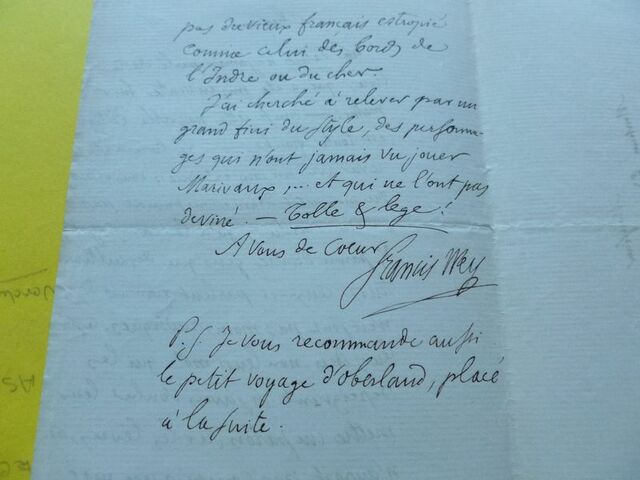 pas du vieux français estropié
comme celui des bords de
l'Indre ou du cher.
J'ai cherché à relever par un
grand fini du style, des personna-
ges qui n'ont jamais vu jouer
Marivaux,... et qui ne l'ont pas
deviné. — Tolle & lege!
A vous de Coeur
Francis Wey
P.S. Je vous recommande aussi
le petit voyage d'oberland, placé
à la suite.